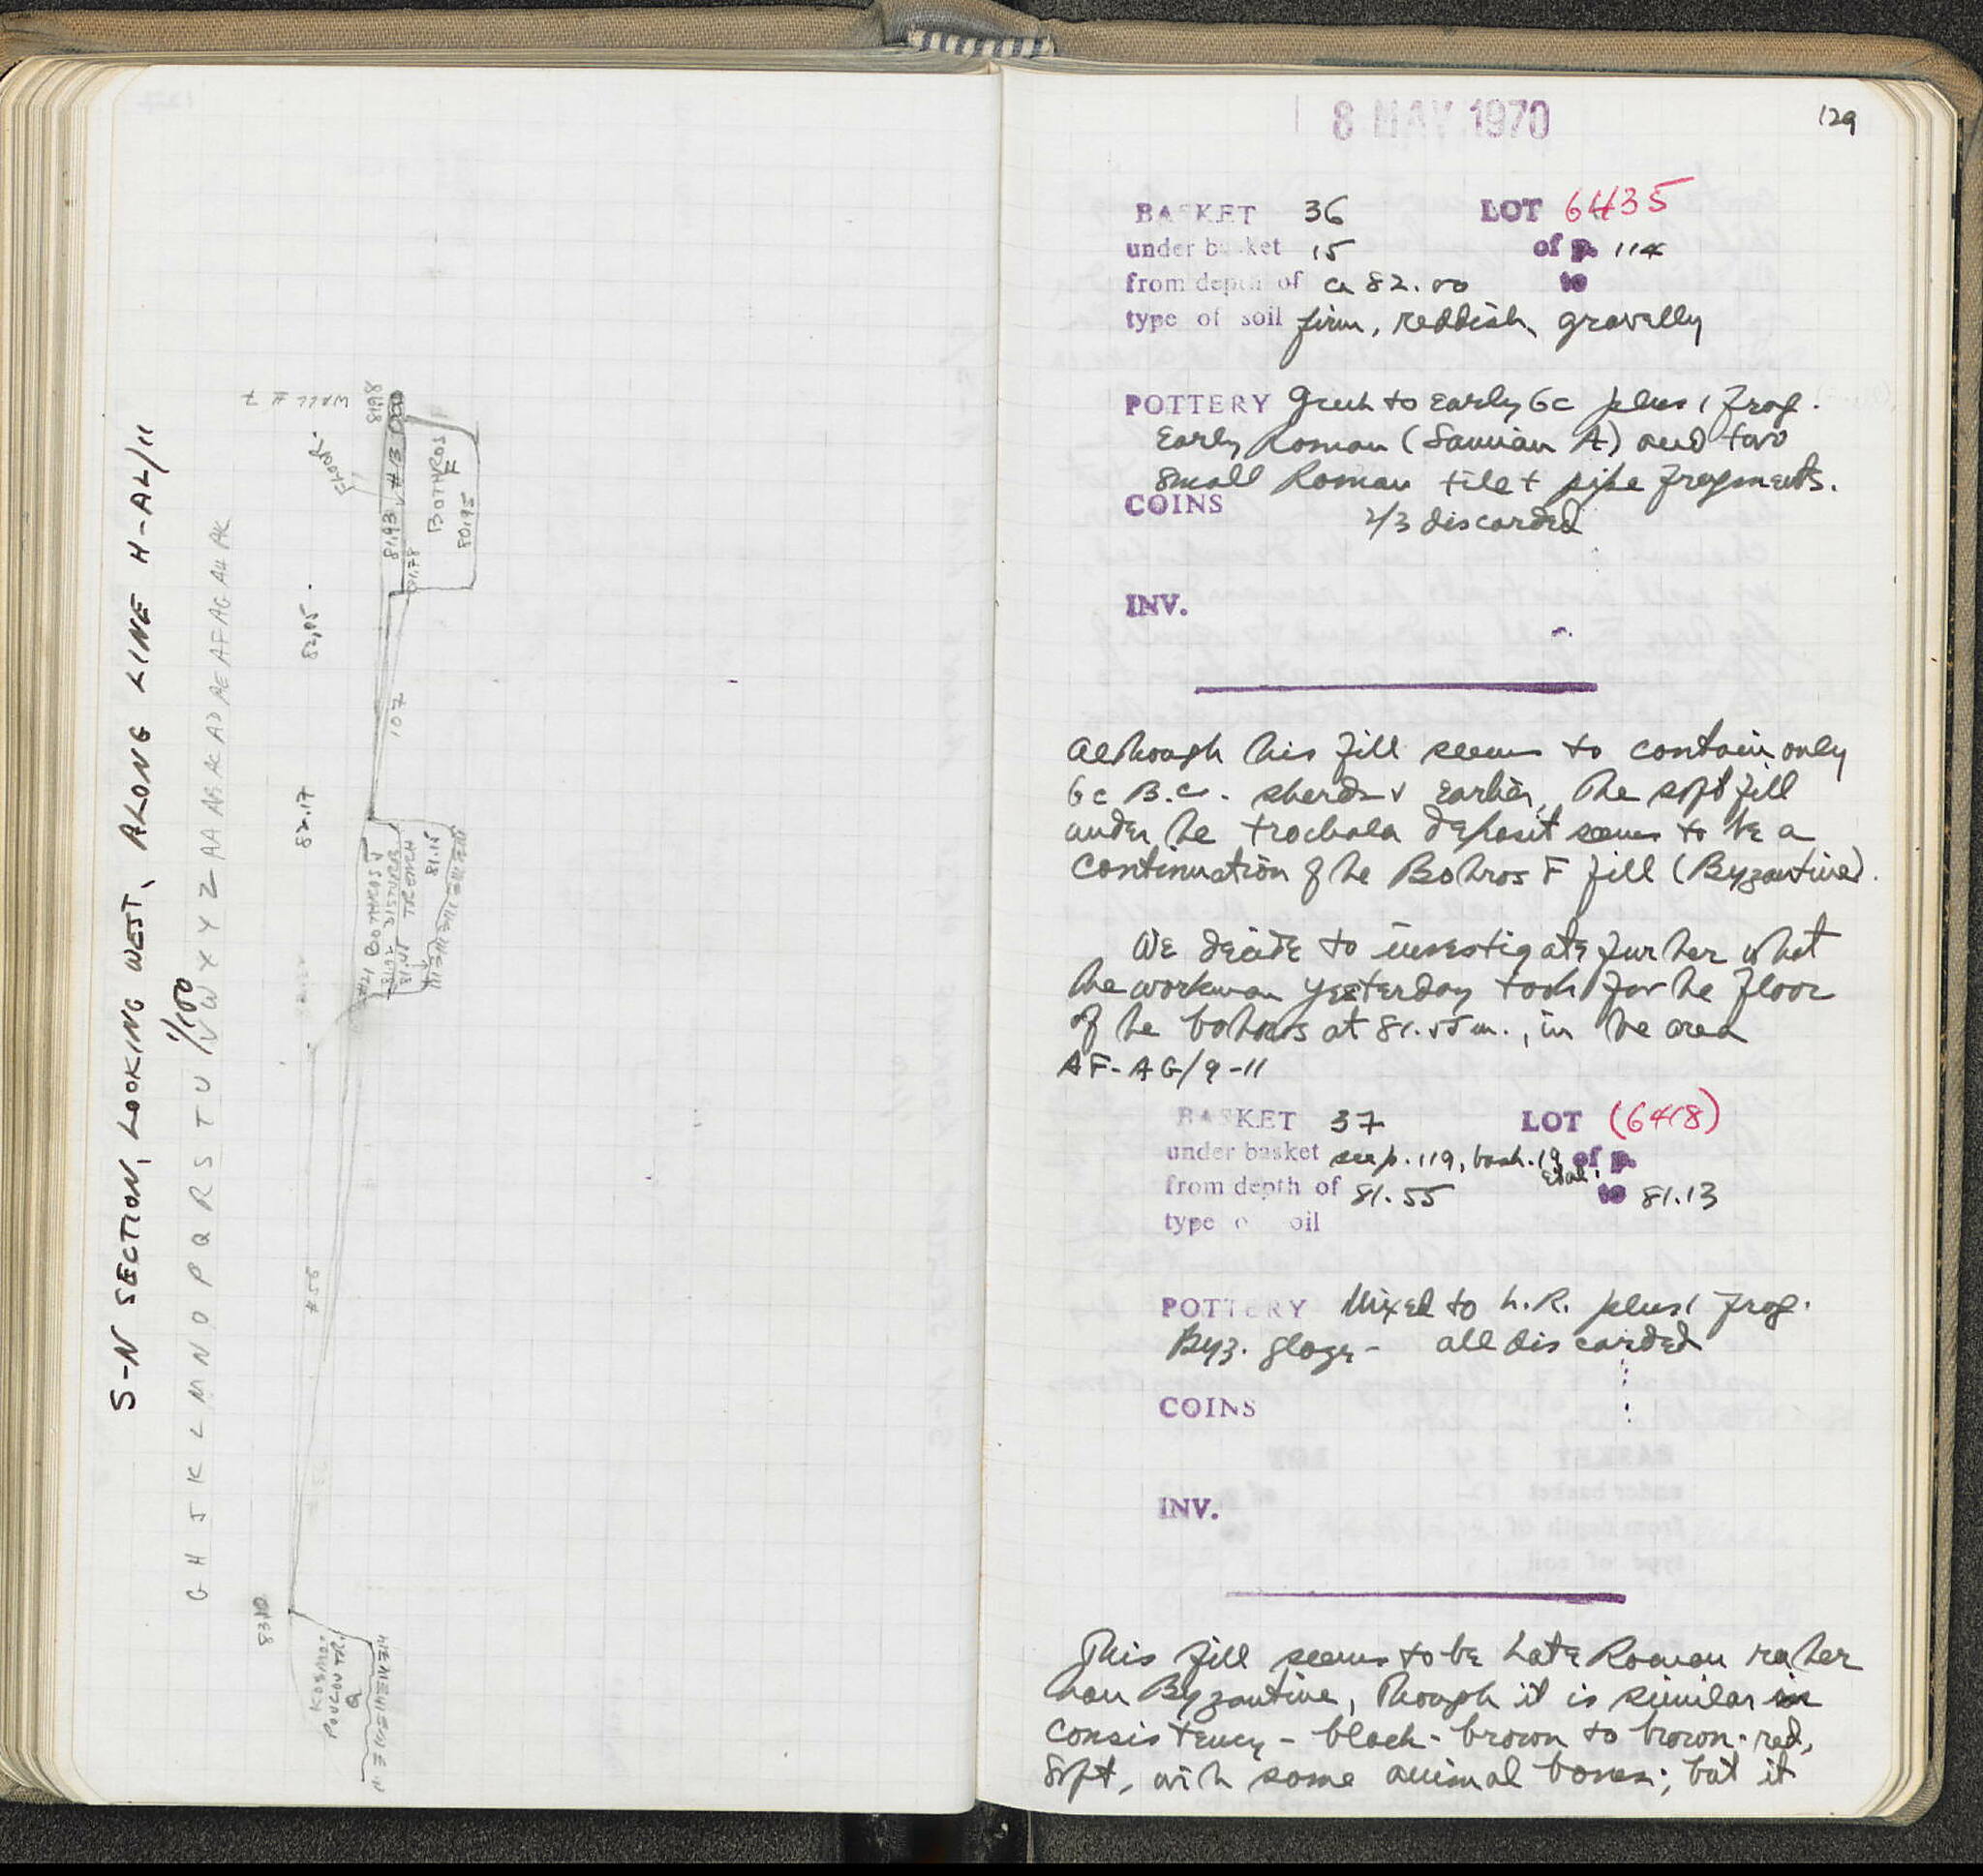 S-N SECTION, LOOKING WEST, ALONG LINE H-AL/11
1/100
G H J K L M N O P Q R S T U V W X Y Z AA AB AC AD AE AF AG AH AK
WALL # 7
81.98
Floor
# 13
81.93
81.78
BOTHROS
F
80.95
82.05
107
82.17
BOTHROS V
TRENCH
81.15
#56
83.10
KOSMO-
POULOU TR.
a
8 MAY 1970
129
BASKET 36 LOT 6435
under basket 15 of p. 114
from depth of ca 82.00 to
type of soil firm, reddish, gravelly
POTTERY Greek to early 6c plus 1 frag.
Early Roman (Samian A) and two
small Roman tile + pipe fragments.
COINS
2/3 discarded
INV.
Although this fill seems to contain only
6c B.C. sherds & earlier, the soft fill
under the trochala deposit seems to be a
continuation of the Bothros F fill (Byzantine).
We decide to investigate further what
the workman yesterday took for the floor
of the bothros at 81.55 m., in the area
AF-AG/9-11
BASKET 37 LOT (6418)
under basket see p. 119, bask. 19 et al. of p.
from depth of 81.55 to 81.13
type of soil
POTTERY Mixed to L.R. plus 1 frag.
Byz. glaze - all discarded
COINS
INV.
This fill seems to be Late Roman rather
than Byzantine, though it is similar in
consistency - black-brown to brown-red,
soft, with some animal bones; but it